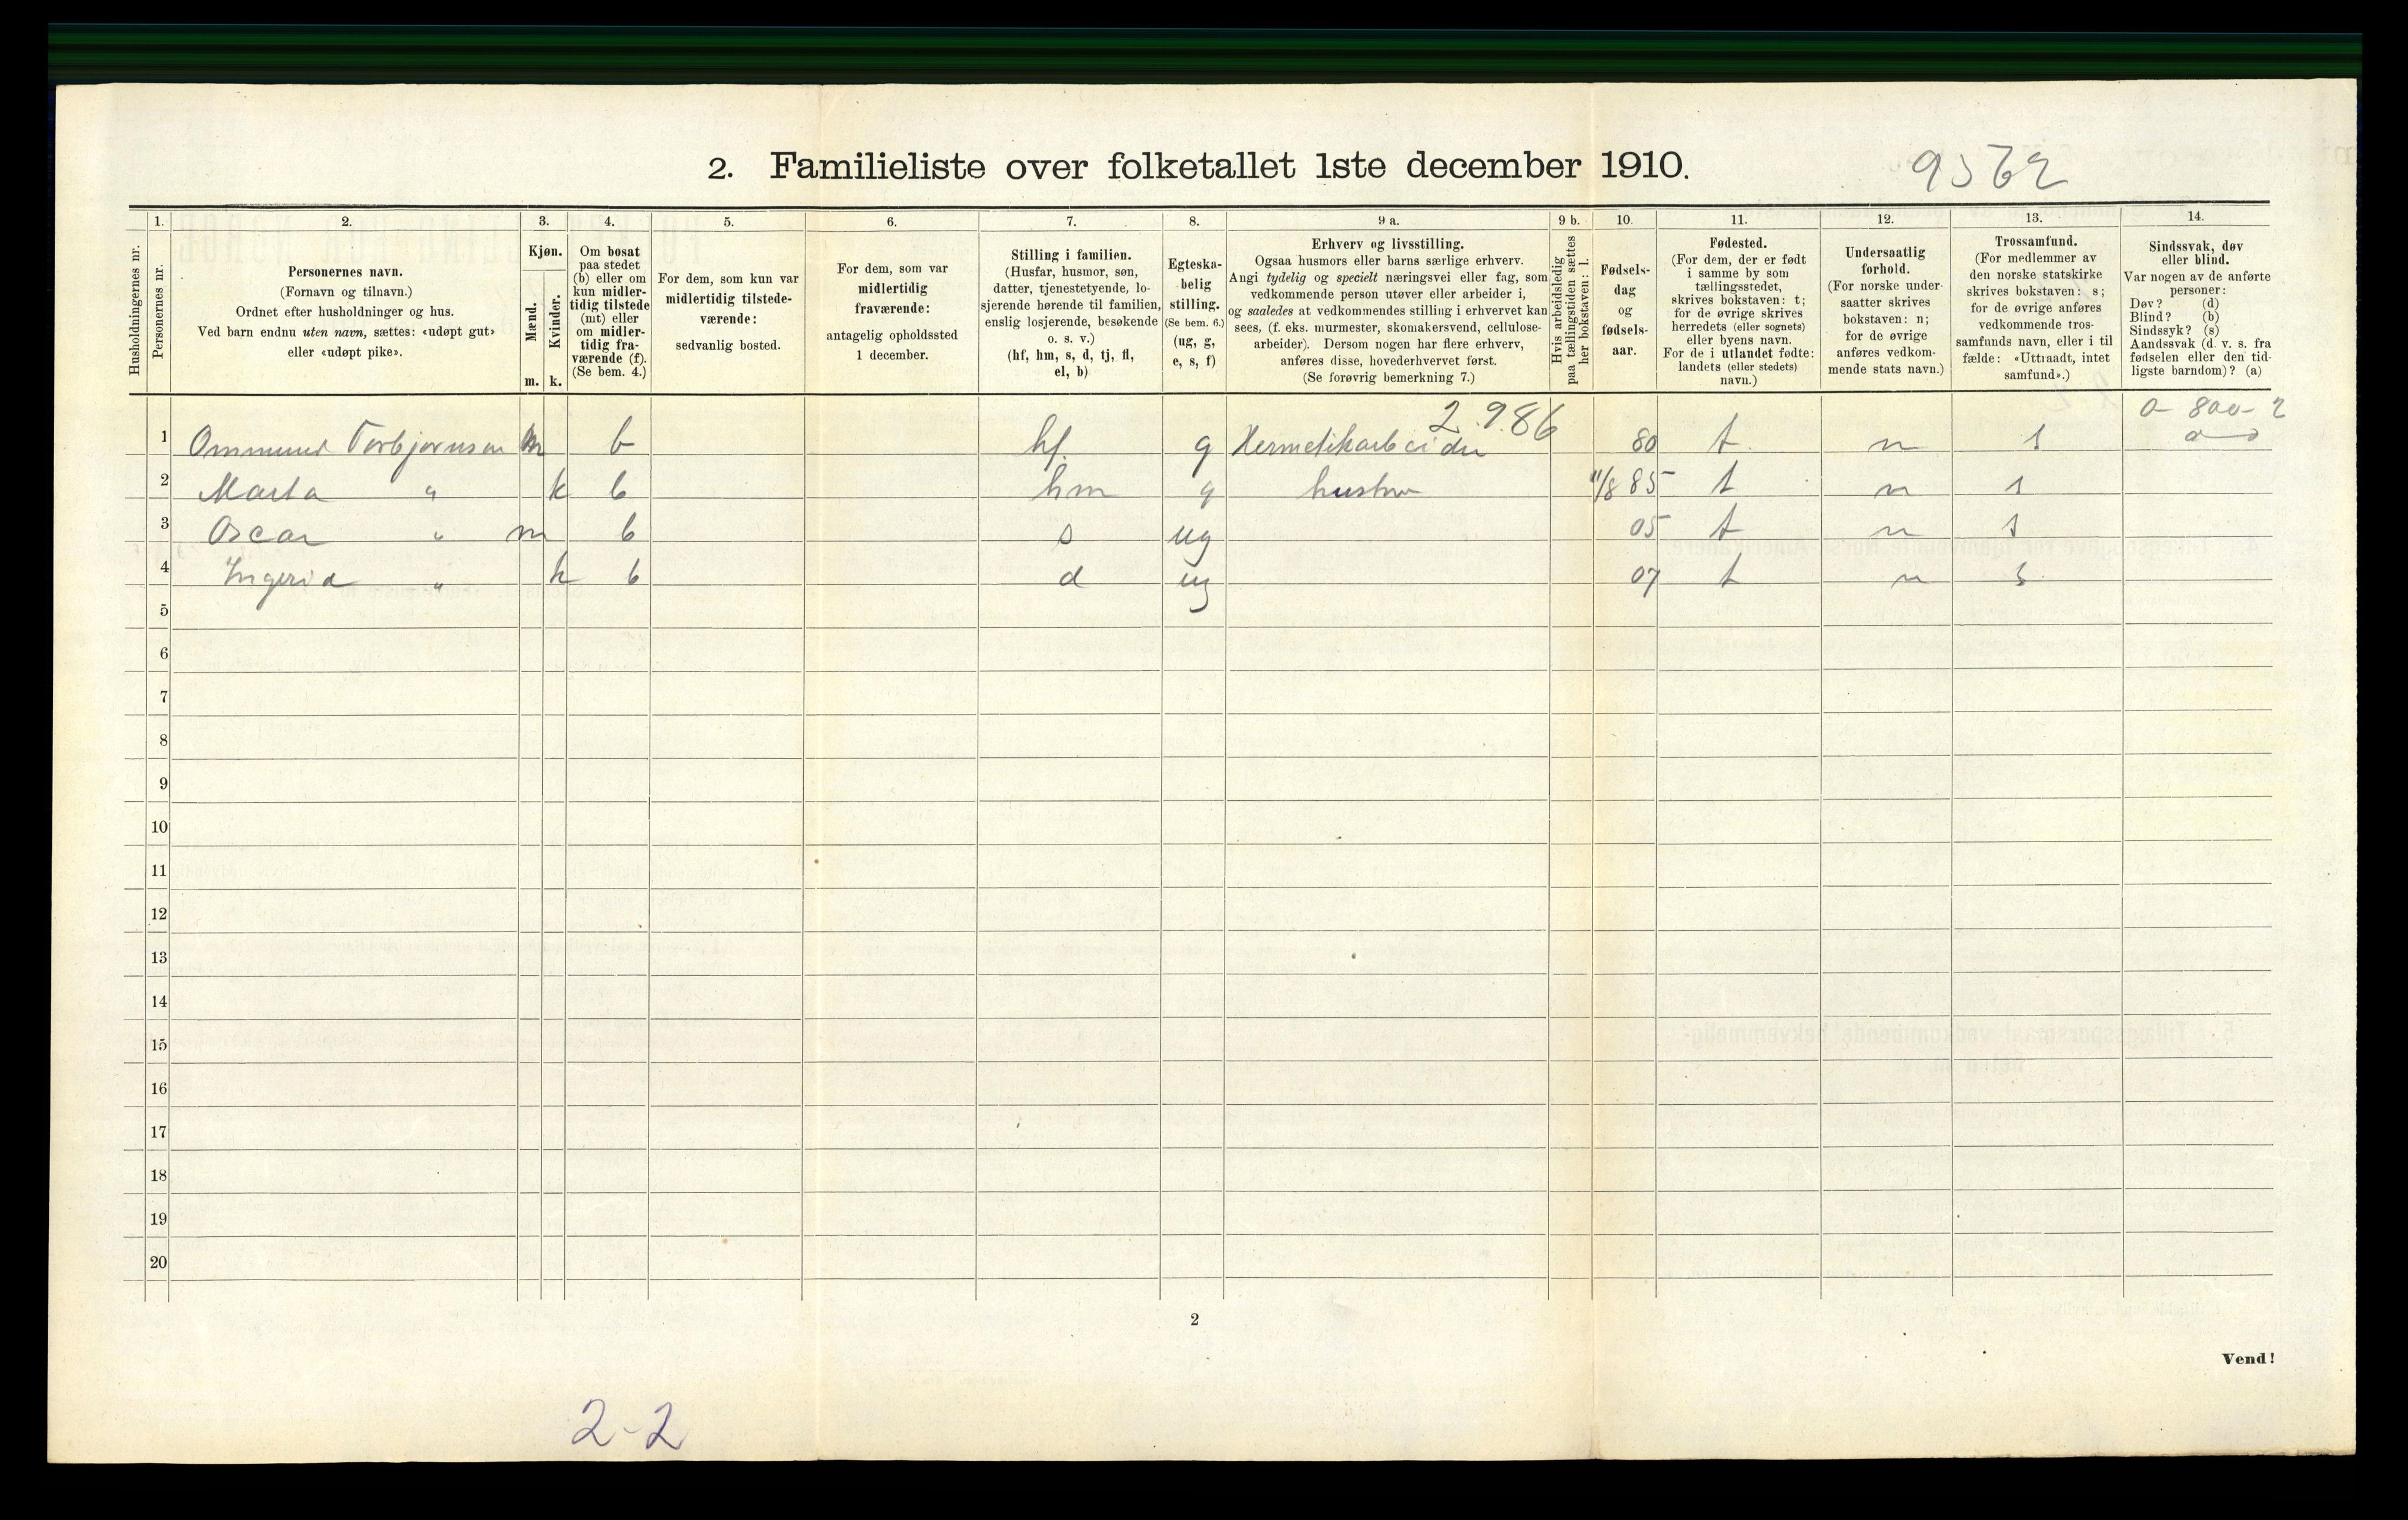 2. Familieliste over folketallet 1ste december 1910.
Husholdningernes nr.
1.
Personernes nr.
2.
Personernes navn.
(Fornavn og tilnavn.)
Ordnet efter husholdninger og hus.
Ved barn endnu uten navn, sættes: «udøpt gut»
eller «udøpt pike».
3.
Kjøn.
Mænd.
Kvinder.
m. k.
4.
Om bosat
paa stedet
(b) eller om
kun midler-
tidig tilstede
(mt) eller
om midler-
tidig fra-
værende (f).
(Se bem. 4.)
5.
For dem, som kun var
midlertidig tilstede-
værende:
sedvanlig bosted.
6.
For dem, som var
midlertidig
fraværende:
antagelig opholdssted
1 december.
7.
Stilling i familien.
(Husfar, husmor, søn,
datter, tjenestetyende, lo-
sjerende hørende til familien,
enslig losjerende, besøkende
o. s. v.)
(hf, hm, s, d, tj, fl,
el, b)
8.
Egteska-
belig
stilling.
(Se bem. 6.)
(ug, g,
e, s, f)
9 a.
Erhverv og livsstilling.
Ogsaa husmors eller barns særlige erhverv.
Angi tydelig og specielt næringsvei eller fag, som
vedkommende person utøver eller arbeider i,
og saaledes at vedkommendes stilling i erhvervet kan
sees, (f. eks. murmester, skomakersvend, cellulose-
arbeider). Dersom nogen har flere erhverv,
anføres disse, hovederhvervet først.
(Se forøvrig bemerkning 7.)
9 b.
Hvis arbeidsledig
paa tællingstiden sættes
her bokstaven: l.
10.
Fødsels-
dag
og
fødsels-
aar.
11.
Fødested.
(For dem, der er født
i samme by som
tællingsstedet,
skrives bokstaven: t;
for de øvrige skrives
herredets (eller sognets)
eller byens navn.
For de i utlandet fødte:
landets (eller stedets)
navn.)
12.
Undersaatlig
forhold.
(For norske under-
saatter skrives
bokstaven: n;
for de øvrige
anføres vedkom-
mende stats navn.)
13.
Trossamfund.
(For medlemmer av
den norske statskirke
skrives bokstaven: s;
for de øvrige anføres
vedkommende tros-
samfunds navn, eller i til
fælde: «Uttraadt, intet
samfund».)
14.
Sindssvak, døv
eller blind.
Var nogen av de anførte
personer:
Døv? (d)
Blind? (b)
Sindssyk? (s)
Aandssvak (d. v. s. fra
fødselen eller den tid-
ligste barndom)? (a)
2.9.86
0-800-2
1 Ommund Torbjørnsen m b hf. g Hermetikarbeider 80 t n s
2 Marta " k b hm g hustru 11/8 85 t n s
3 Oscar " m b s ug 05 t n s
4 Ingerid " k b d ug 07 t n s
5
6
7
8
9
10
11
12
13
14
15
16
17
18
19
20
2
Vend!
2-2